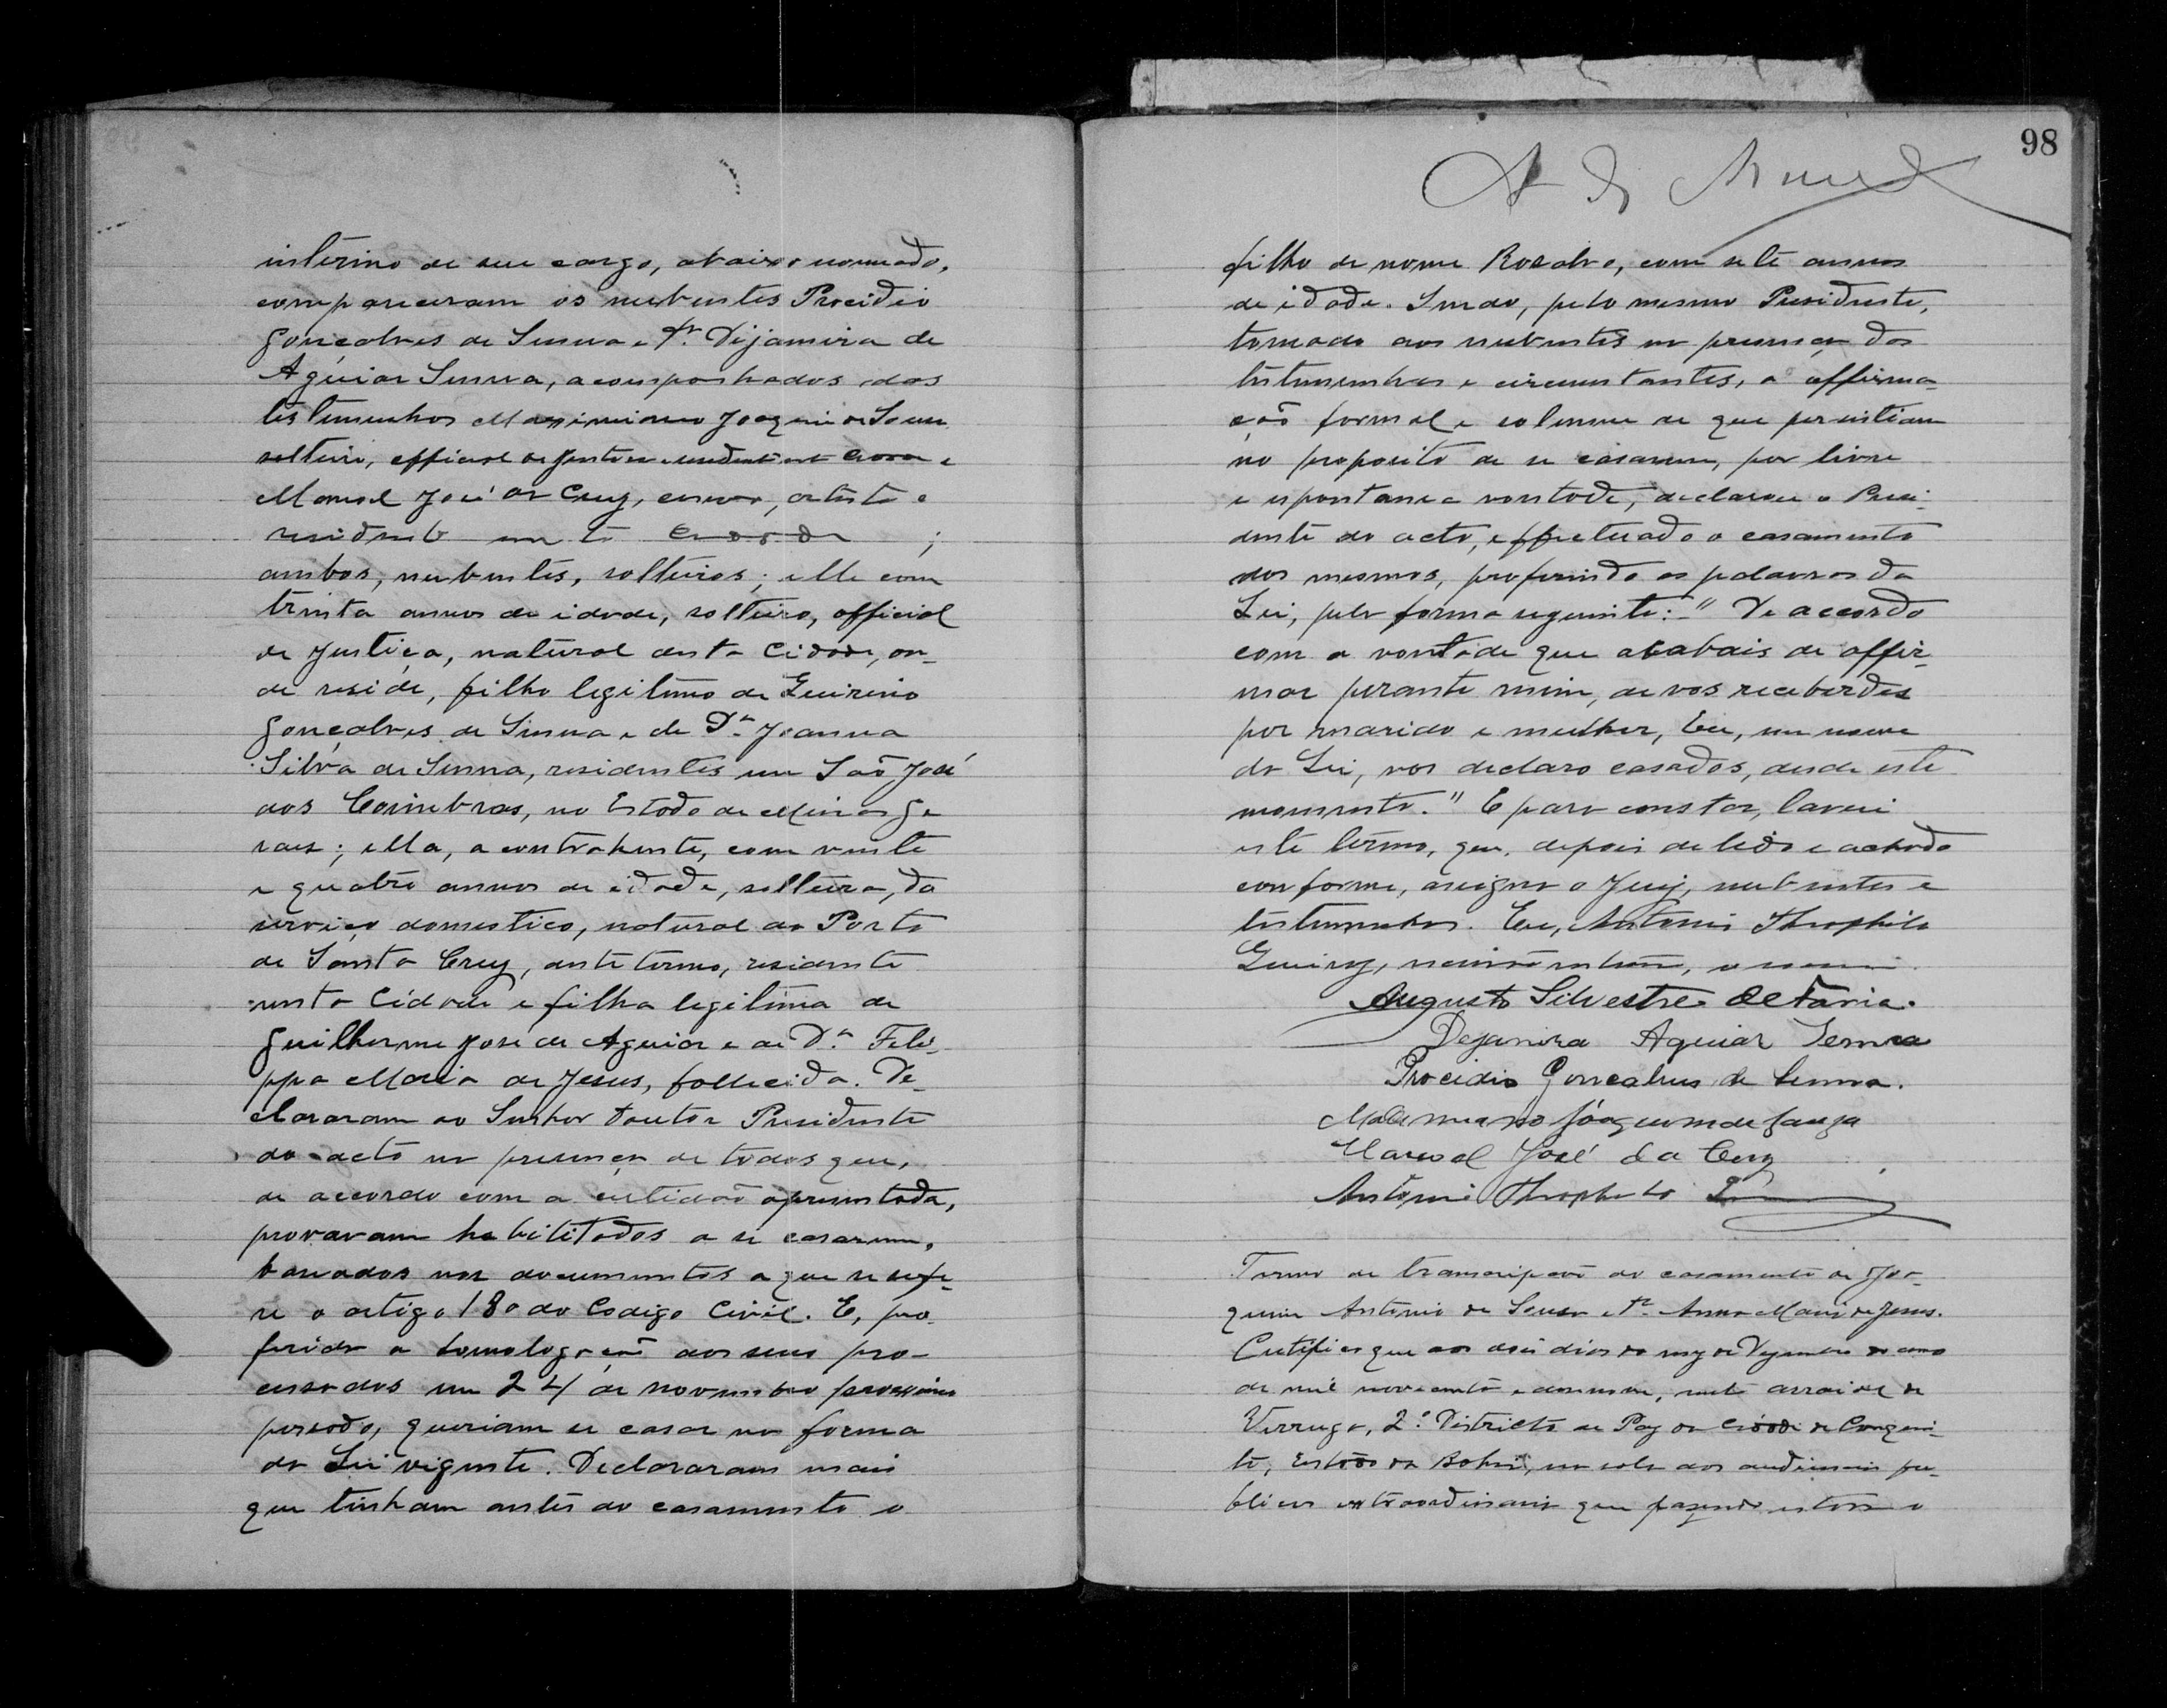 interino de seu cargo, abaixo nomeado,
compareceram os nubentes Procidio
Gonçalves de Senna e Dª. Dijamira de
Aguiar Senna, acompanhados das
testemunhas Maximiano Joaquim de Souza
solteiro, official de justiça e residente nesta Cidade e
Manoel José da Cruz, casado, artista e
residente nesta Cidade ;
ambos, nubentes, solteiros; elle com
trinta annos de idade, solteiro, official
de Justiça, natural desta Cidade, on-
de reside, filho legitimo de Quirino
Gonçalves de Senna e de Dª. Joanna
Silva de Senna, residentes em São José
dos Coimbras, no Estado de Minas Ge
raes; ella, a contrahente, com vinte
e quatro annos de idade, solteira, do
serviço domestico, natural do Porto
de Santa Cruz, deste termo, residente
nesta Cidade e filha legitima de
Guilherme José de Aguiar e de Dª. Feli-
ppa Maria de Jesus, fallecida. De-
clararam ao Senhor Doutor Presidente
do acto na presença de todos que,
de accordo com a certidão apresentada,
provavam habilitados a se casarem,
baseados nos documentos a que se refe-
re o artigo 180 do Codigo Civil. E, pro
ferida a homologação dos seus pro-
cessados em 24 de novembro proximo
passado, queriam se casar na forma
da Lei vigente. Declararam mais
que tinham antes do casamento o
98
filho de nome Rosalvo, com sete annos
de idade. Sendo, pelo mesmo Presidente,
tomado aos nubentes na presença das
testemunhas e circumstantes, a affirma-
ção formal e solemne de que persistiam
no proposito de se casarem, por livre
e espontanea vontade, declarou o Presi-
dente do acto, effectuado o casamento
dos mesmos, proferindo as palavras da
Lei, pela forma seguinte: "De accordo
com a vontade que acabais de affir-
mar perante mim, de vos receberdes
por marido e mulher, Eu, em nome
da Lei, vos declaro casados, desde este
momento." E para constar, lavrei
este termo, que, depois de lido e achado
conforme, assigna o Juiz, nubentes e
testemunhas. Eu, Antonio Theophilo
Augusto Silvestre de Faria.
Dejanira Aguiar Senna
Procidio Gonçalves de Senna.
Maximiano Joaquim de Souza
Manoel José da Cruz
Antonio Theophilo
Termo de transcripção do casamento de Joa-
quim Antonio de Souza e Dª. Anna Maria de Jesus.
Certifico que aos dois dias do mez de Dezembro do anno
de mil novecentos e dezenove, neste arraial de
Verruga, 2º. Districto de Paz da Cidade de Conquis-
ta, Estado da Bahia, na sala das audiencias pu-
blicas extraordinaria que fazendo estava o